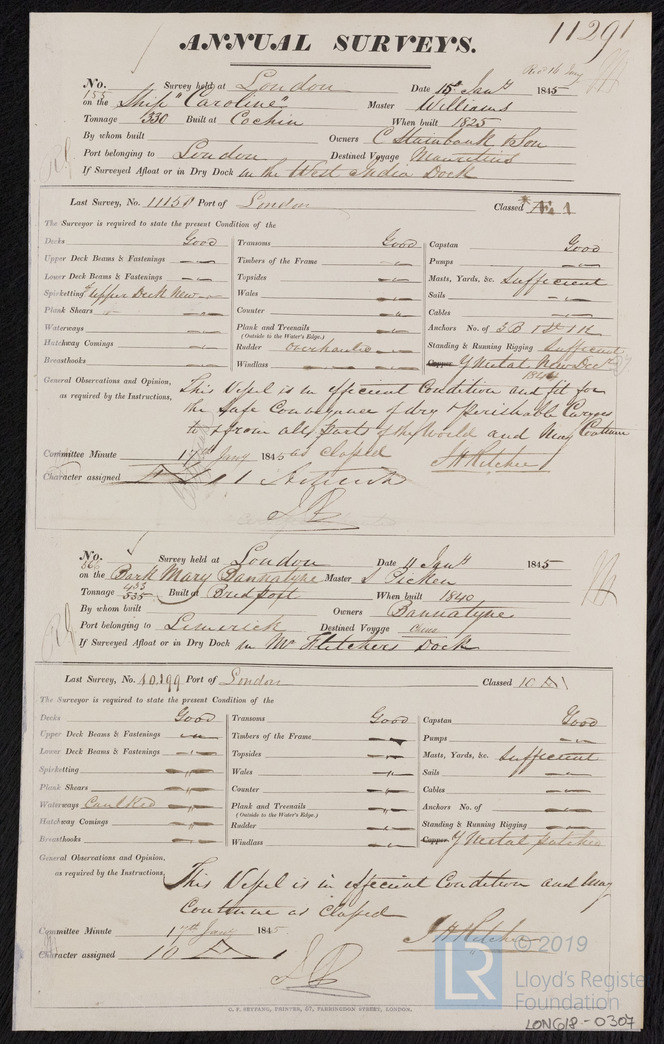 11291
ANNUAL SURVEYS.
Rec 16 Jany
No. 155 Survey held at London Date 15th Jany 1845
on the Ship "Caroline" Master Williams
Tonnage 330 Built at Cochin When built 1825
By whom built Owners C Stainbank & Son
Port belonging to London Destined Voyage Mauritius
If Surveyed Afloat or in Dry Dock in the West India Dock
Last Survey, No. 11150 Port of London Classed *Æ 1
The Surveyor is required to state the present Condition of the
Decks Good Transoms Good Capstan Good
Upper Deck Beams & Fastenings " Timbers of the Frame " Pumps "
Lower Deck Beams & Fastenings " Topsides " Masts, Yards, &c. Sufficient
Spirketting of upper Deck New Wales " Sails "
Plank Shears " Counter " Cables "
Waterways " Plank and Treenails " Anchors No. of 3 B 1 St 1 K
(Outside to the Water's Edge.)
Hatchway Comings " Rudder Overhauled " Standing & Running Rigging Sufficient
Breasthooks " Windlass " Copper Y Metal New Decr 1844
General Observations and Opinion, This Vessel is in efficient Condition and fit for
as required by the Instructions, the safe Conveyance of dry & Perishable Cargoes
to & from all parts of the World and May Continue
Committee Minute 17th Jany 1845 as classed
J H Ritchie
Character assigned Æ 1
No. 866 Survey held at London Date 11 Jany 1845
on the Bark Mary Bannatyne Master Picken
Tonnage 453 535 Built at Bredport When built 1840
By whom built Owners Bannatyne
Port belonging to Limerick Destined Voyage China
If Surveyed Afloat or in Dry Dock in Mr Fletchers Dock
Last Survey, No. 10.199 Port of London Classed 10 A 1
The Surveyor is required to state the present Condition of the
Decks Good Transoms Good Capstan Good
Upper Deck Beams & Fastenings " Timbers of the Frame " Pumps "
Lower Deck Beams & Fastenings " Topsides " Masts, Yards, &c. Sufficient
Spirketting " Wales " Sails "
Plank Shears " Counter " Cables "
Waterways Caulked " Plank and Treenails " Anchors No. of "
(Outside to the Water's Edge.)
Hatchway Comings " Rudder " Standing & Running Rigging "
Breasthooks " Windlass " Copper Y Metal patched
General Observations and Opinion,
as required by the Instructions, This Vessel is in efficient Condition and May
Continue as classed
Committee Minute 17th Jany 1845
J H Ritchie
Character assigned 10 A 1
C. F. SEYFANG, PRINTER, 57, FARRINGDON STREET, LONDON.
LR © 2019
Lloyd's Register
Foundation
LON618-0307